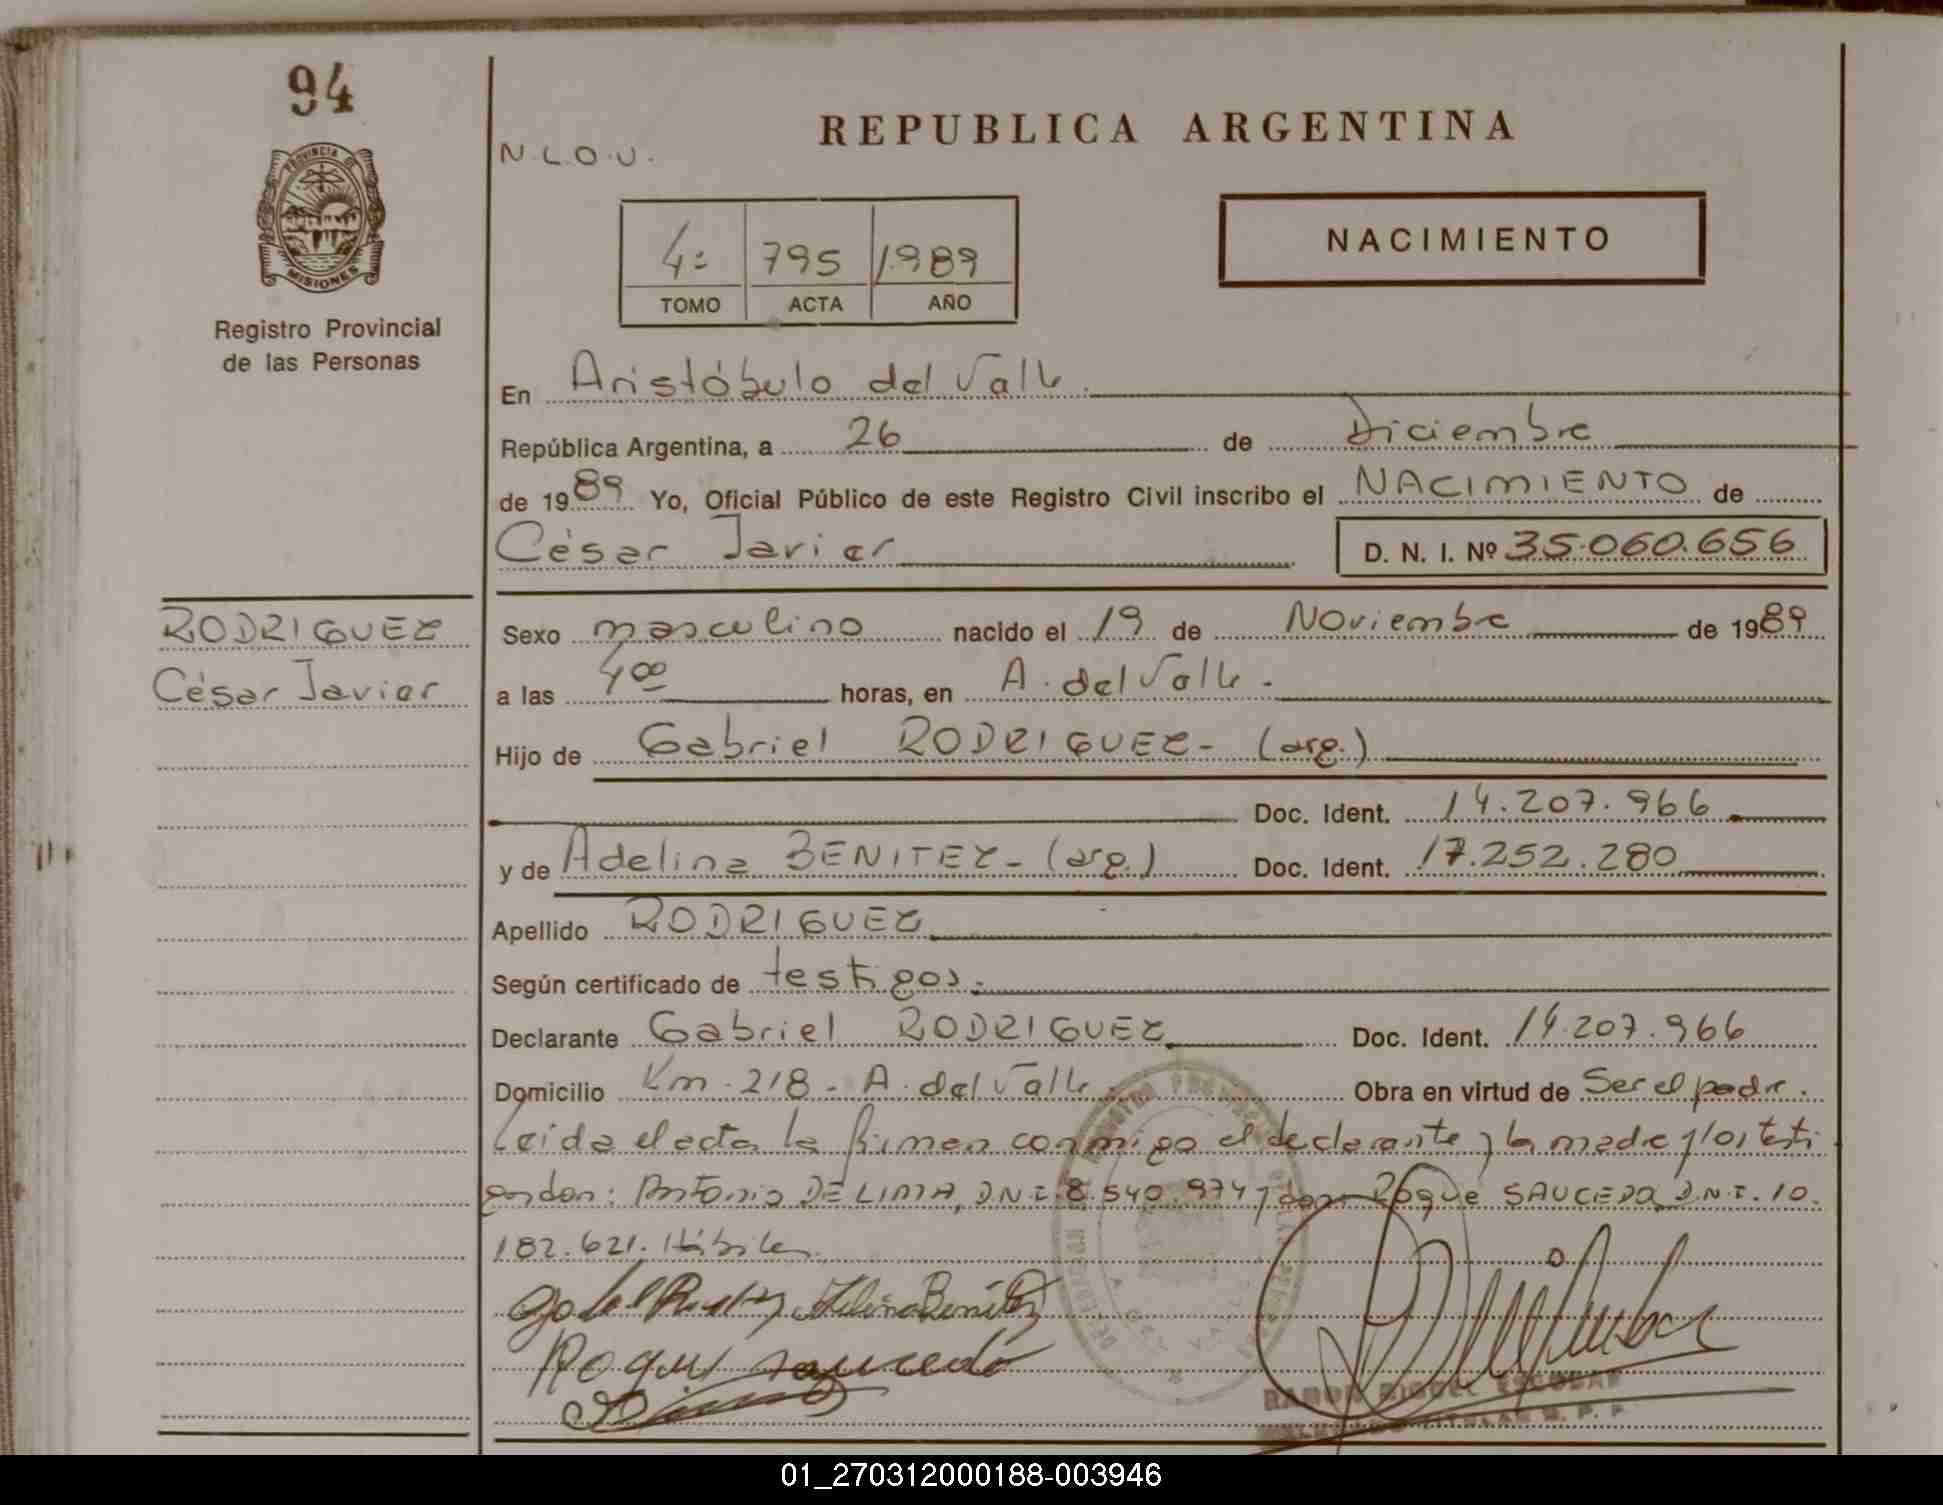 94
PROVINCIA DE
MISIONES
Registro Provincial
de las Personas
RODRIGUEZ
César Javier
N.L.O.U.
REPUBLICA ARGENTINA
4º 795 1989
TOMO ACTA AÑO
NACIMIENTO
En Aristóbulo del Valle.
República Argentina, a 26 de Diciembre
de 1989 Yo, Oficial Público de este Registro Civil inscribo el NACIMIENTO de
César Javier D. N. I. Nº 35.060.656
Sexo masculino nacido el 19 de Noviembre de 1989
a las 4 00 horas, en A. del Valle.
Hijo de Gabriel RODRIGUEZ - (arg.)
Doc. Ident. 14.207.966
y de Adelina BENITEZ - (arg.) Doc. Ident. 17.252.280
Apellido RODRIGUEZ
Según certificado de testigos.
Declarante Gabriel RODRIGUEZ Doc. Ident. 14.207.966
Domicilio Km. 218 - A. del Valle. Obra en virtud de Ser el padre.
Leida el acta la firman conmigo el declarante y la madre y los testi
gos don: Antonio DE LIMA, D.N.I. 8.540.974 y don Roque SAUCEDO D.N.I. 10.
182.621. Hábiles.
Adelina Benitez
Roque Saucedo
RAMON MIGUEL ESCOBAR
01_270312000188-003946